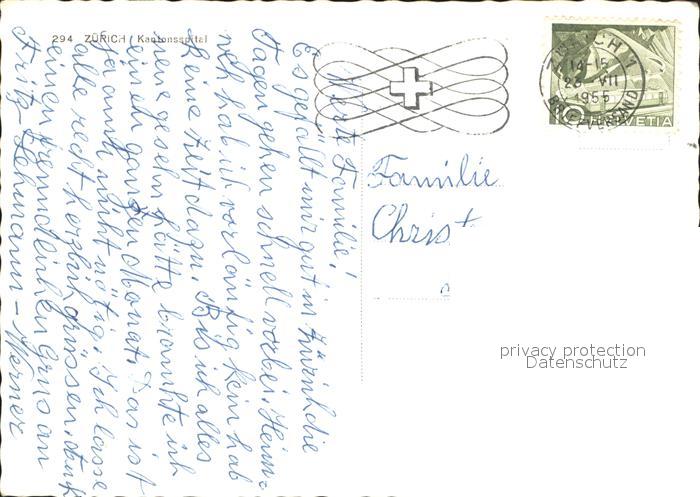 294 ZÜRICH Kantonsspital
Werte Familie!
Es gefällt mir gut in Zürich die
Tagen gehen schnell vorbei. Heim-
weh hab ich vorläufig kein hab
keine Zeit dazu. Bis ich alles
gesehn hätte brauchte ich
einen ganzen Monat. Das ist
ja auch nicht nötig. Ich lasse
alle recht herzlich grüssen. Auch
einen freundlichen Gruss an
Fritz Lehmann - Werner
ZÜRICH 1
14-15
22 VII
1955
BRIEFVERSAND
10 HELVETIA
Familie
Christ
privacy protection
Datenschutz